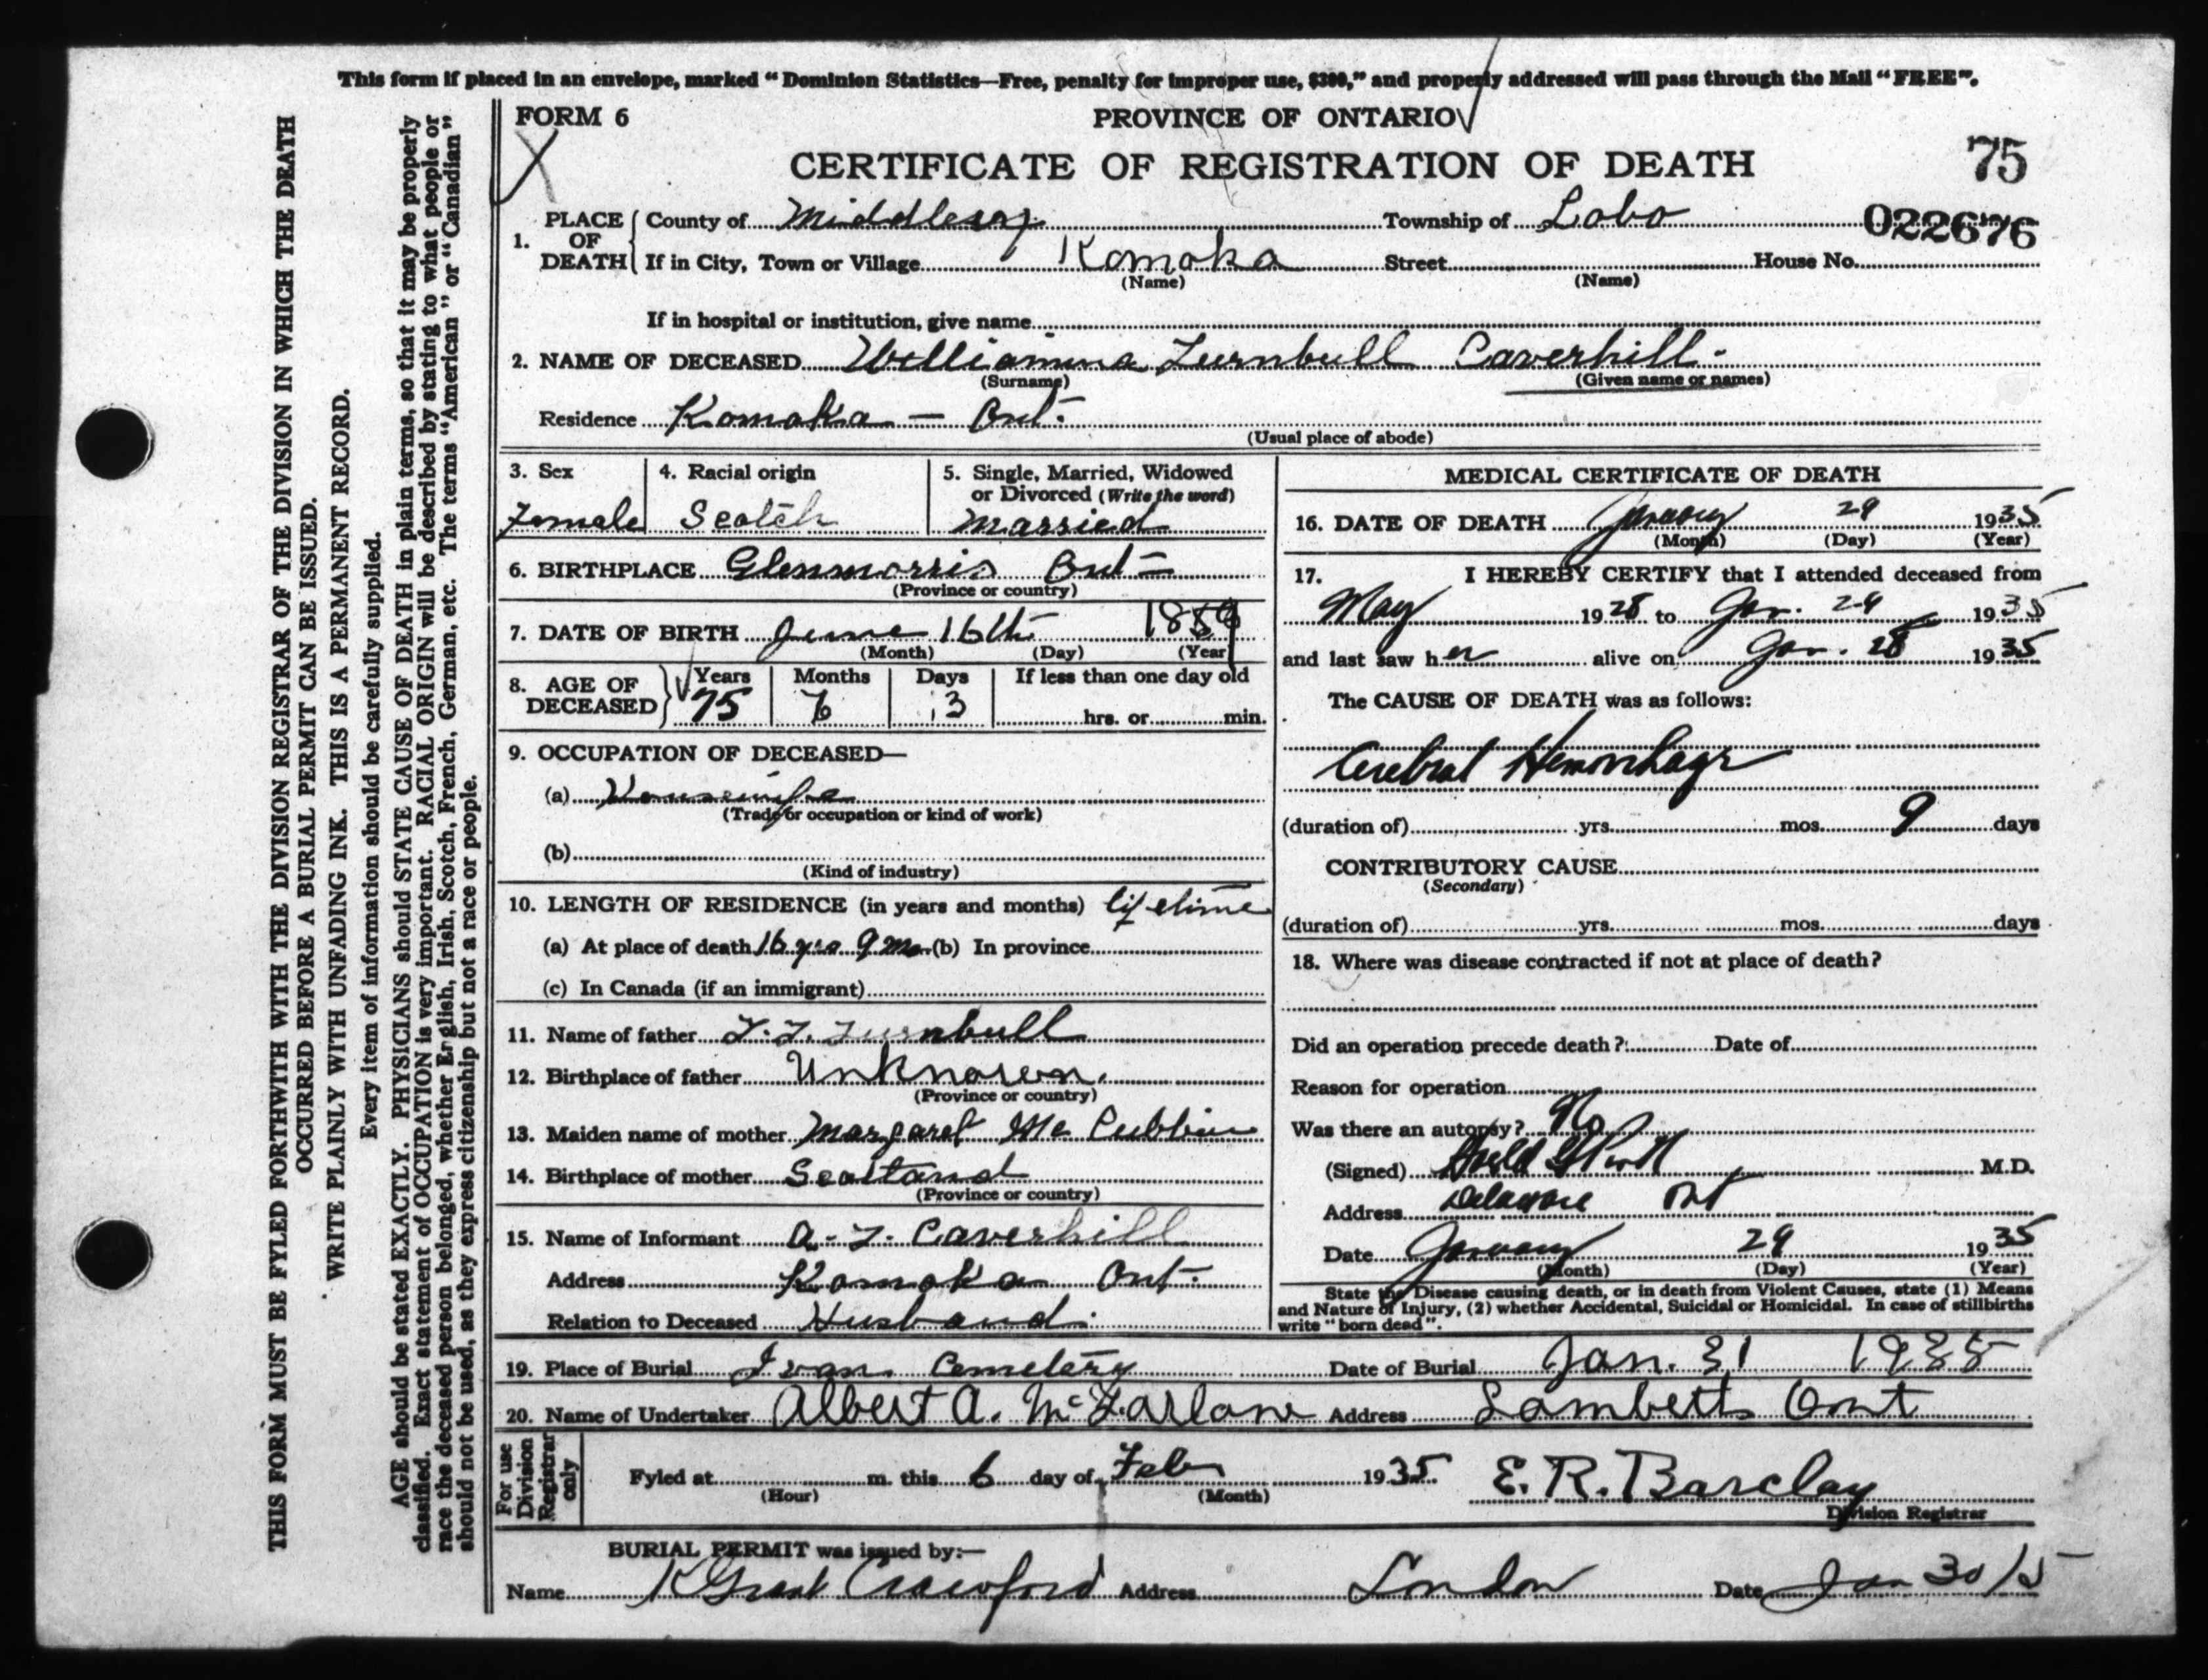 This form if placed in an envelope, marked "Dominion Statistics—Free, penalty for improper use, $300," and properly addressed will pass through the Mail "FREE".
FORM 6
PROVINCE OF ONTARIO
CERTIFICATE OF REGISTRATION OF DEATH
75
022676
1. PLACE OF DEATH County of Middlesex Township of Lobo
If in City, Town or Village Komoka Street House No.
(Name) (Name)
If in hospital or institution, give name
2. NAME OF DECEASED Williamina Turnbull Caverhill
(Surname) (Given name or names)
Residence Komoka — Ont.
(Usual place of abode)
3. Sex Female
4. Racial origin Scotch
5. Single, Married, Widowed
or Divorced (Write the word)
Married
6. BIRTHPLACE Glenmorris Ont
(Province or country)
7. DATE OF BIRTH June 16th 1859
(Month) (Day) (Year)
8. AGE OF DECEASED Years 75 Months Days 13 If less than one day old
hrs. or min.
9. OCCUPATION OF DECEASED—
(a) Housewife
(Trade or occupation or kind of work)
(b)
(Kind of industry)
10. LENGTH OF RESIDENCE (in years and months) lifetime
(a) At place of death 16 yrs 9 mo (b) In province
(c) In Canada (if an immigrant)
11. Name of father Turnbull
12. Birthplace of father Unknown.
(Province or country)
13. Maiden name of mother Margaret Mc Cubbin
14. Birthplace of mother Scotland
(Province or country)
15. Name of Informant A. T. Caverhill
Address Komoka Ont.
Relation to Deceased Husband.
MEDICAL CERTIFICATE OF DEATH
16. DATE OF DEATH January 29 1935
(Month) (Day) (Year)
17. I HEREBY CERTIFY that I attended deceased from
May 1928 to Jan. 29 1935
and last saw her alive on Jan. 28 1935
The CAUSE OF DEATH was as follows:
Cerebral Hemorrhage
(duration of) yrs. mos. 9 days
CONTRIBUTORY CAUSE
(Secondary)
(duration of) yrs. mos. days
18. Where was disease contracted if not at place of death?
Did an operation precede death? Date of
Reason for operation
Was there an autopsy? No
(Signed) M.D.
Address Delaware Ont
Date January 29 1935
(Month) (Day) (Year)
State the Disease causing death, or in death from Violent Causes, state (1) Means
and Nature of Injury, (2) whether Accidental, Suicidal or Homicidal. In case of stillbirths
write "born dead".
19. Place of Burial Ivan Cemetery Date of Burial Jan. 31 1935
20. Name of Undertaker Albert A. McFarlane Address Lambeth Ont
For use
Division
Registrar
only
Fyled at m. this 6 day of Feb 1935 E. R. Barclay
(Hour) (Month) Division Registrar
BURIAL PERMIT was issued by:—
Name Grant Crawford Address London Date Jan 30/
THIS FORM MUST BE FYLED FORTHWITH WITH THE DIVISION REGISTRAR OF THE DIVISION IN WHICH THE DEATH
OCCURRED BEFORE A BURIAL PERMIT CAN BE ISSUED.
WRITE PLAINLY WITH UNFADING INK. THIS IS A PERMANENT RECORD.
Every item of information should be carefully supplied.
AGE should be stated EXACTLY. PHYSICIANS should STATE CAUSE OF DEATH in plain terms, so that it may be properly
classified. Exact statement of OCCUPATION is very important. RACIAL ORIGIN will be described by stating to what people or
race the deceased person belonged, whether English, Irish, Scotch, French, German, etc. The terms "American" or "Canadian"
should not be used, as they express citizenship but not a race or people.